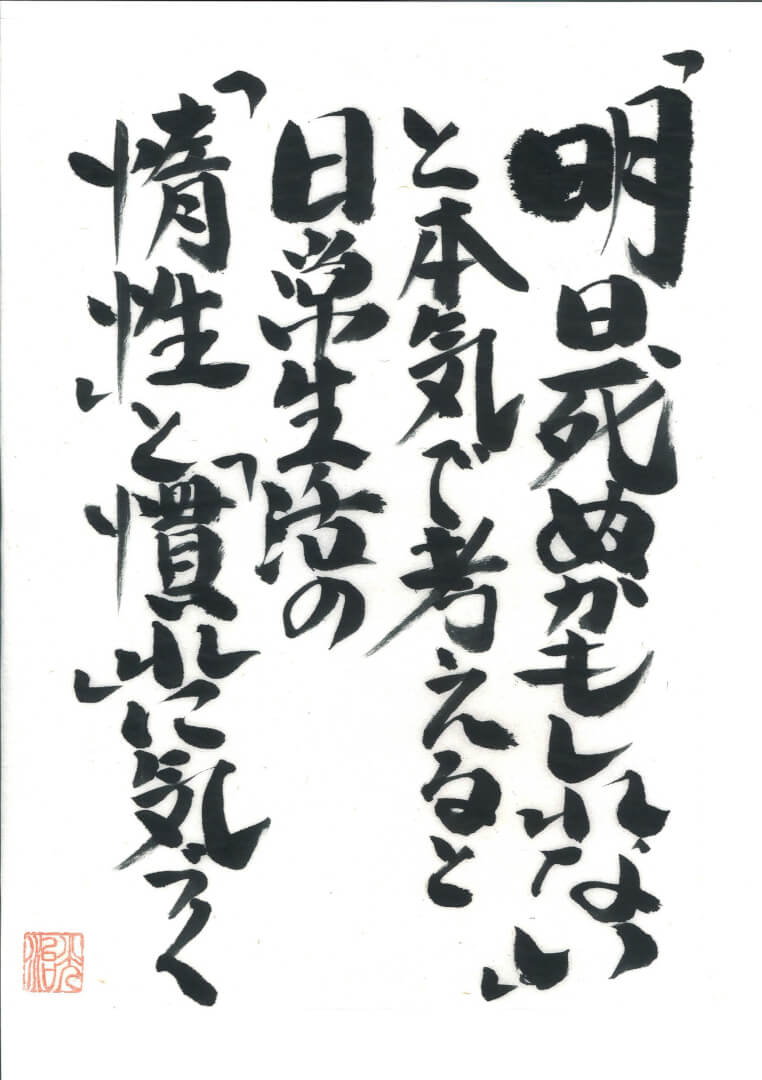 「明日死ぬかもしれない」
と本気で考えると
日常生活の
「惰性」と「慣れ」に気づく